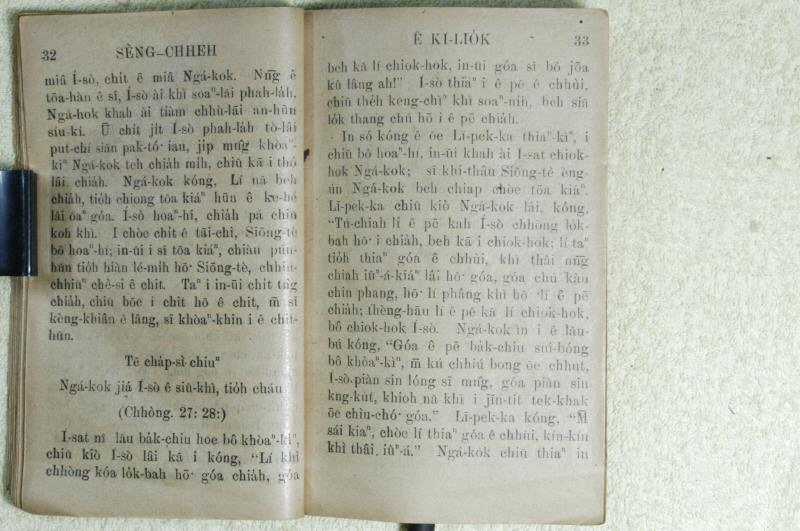 32 SÈNG-CHHEH
miâ Í-sò, chit ê miâ Ngá-kok. Nn̄g ê
tōa-hàn ê sî, Í-sò ài khì soaⁿ-lāi phah-la̍h.
Ngá-hok khah ài tiàm chhù-lāi an-hūn
siu-kí. Ū chit ji̍t Í-sò phah-la̍h tò-lâi
put-chí siān pak-tó͘ iau, ji̍p mn̂g khòaⁿ-
kìⁿ Ngá-kok teh chia̍h mi̍h, chiū kā i thó
lâi chia̍h. Ngá-kok kóng, Lí nā beh
chia̍h, tio̍h chiong tōa kiáⁿ hūn ê
lâi ōaⁿ góa. Í-sò hoaⁿ-hí, chia̍h pá chiū
koh khì. I chòe chit ê tāi-chì, Siōng-tè
bô hoaⁿ-hí; in-ūi i sī tōa kiáⁿ, chiàu pún-
hūn tio̍h hiàn lé-mi̍h hō͘ Siōng-tè, chhin-
chhiūⁿ chè-si ê chit. Taⁿ i in-ūi chi̍t tǹg
chia̍h, chiū bōe i chit hō ê chit, m̄ sī
kèng-khiân ê lâng, sī khòaⁿ-khin i ê chit-
hūn.
Tē cha̍p-sì chiuⁿ
Ngá-kok jiá Í-sò ê siū-khì, tio̍h cháu
(Chhòng. 27: 28:)
Í-sat nî lāu ba̍k-chiu hoe bô khòaⁿ-kìⁿ,
chiū kiò Í-sò lâi kā i kóng, "Lí khì
chhòng kóa lo̍k-bah hō͘ góa chia̍h, góa
Ê KI-LIO̍K 33
beh kā lí chiok-hok, in-ūi góa sī bô jōa
kú lâng ah!" Í-sò thiaⁿ i ê pē ê chhùi,
chiū the̍h keng-chìⁿ khì soaⁿ-nih, beh siā
lo̍k thang chú hō͘ i ê pē chia̍h.
In só kóng ê ōe Lī-pek-ka thiaⁿ-kìⁿ, i
chiū bô hoaⁿ-hí, in-ūi khah ài Í-sat chiok-
hok Ngá-kok; sī khí-thâu Siōng-tè èng-
ún Ngá-kok beh chiap chòe tōa kiáⁿ.
Lī-pek-ka chiū kiò Ngá-kok lâi, kóng,
"Tú-chiah lí ê pē kah Í-sò chhòng lo̍k-
bah hō͘ i chia̍h, beh kā i chiok-hok; lí taⁿ
tio̍h thiaⁿ góa ê chhùi, khì thâi nn̄g
chiah iûⁿ-á-kiáⁿ lâi hō͘ góa, góa chú kàu
chin phang, hō͘ lí phâng khì hō͘ lí ê pē
chia̍h; thèng-hāu lí ê pē kā lí chiok-hok,
bô chiok-hok Í-sò. Ngá-kok ìn i ê lāu-
bú kóng, "Góa ê pē ba̍k-chiu sui-bóng
bô khòaⁿ-kìⁿ, m̄ kú chhiú bong ōe chhut,
Í-sò piàn sin lóng sī mn̂g, góa piàn sin
kng-ku̍t, khioh nā khì i jīn-tit tek-khak
ōe chiù-chó͘ góa." Lī-pek-ka kóng, "M̄
sái kiaⁿ, chòe lí thiaⁿ góa ê chhùi, kín-kín
khì thâi iûⁿ-á." Ngá-kok chiū thiaⁿ in